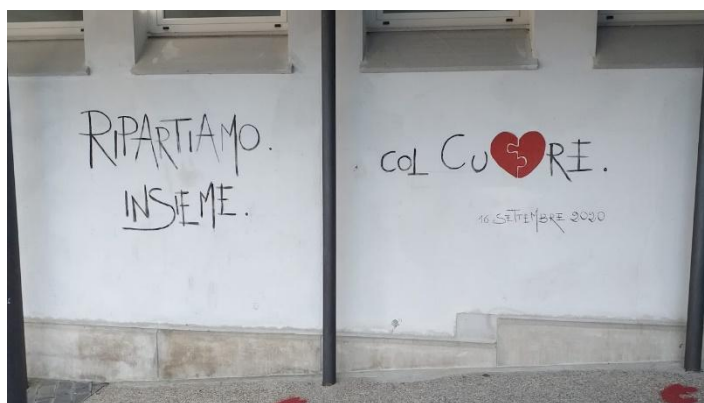 RIPARTIAMO.
INSIEME.
COL CUORE.
16 SETTEMBRE 2020